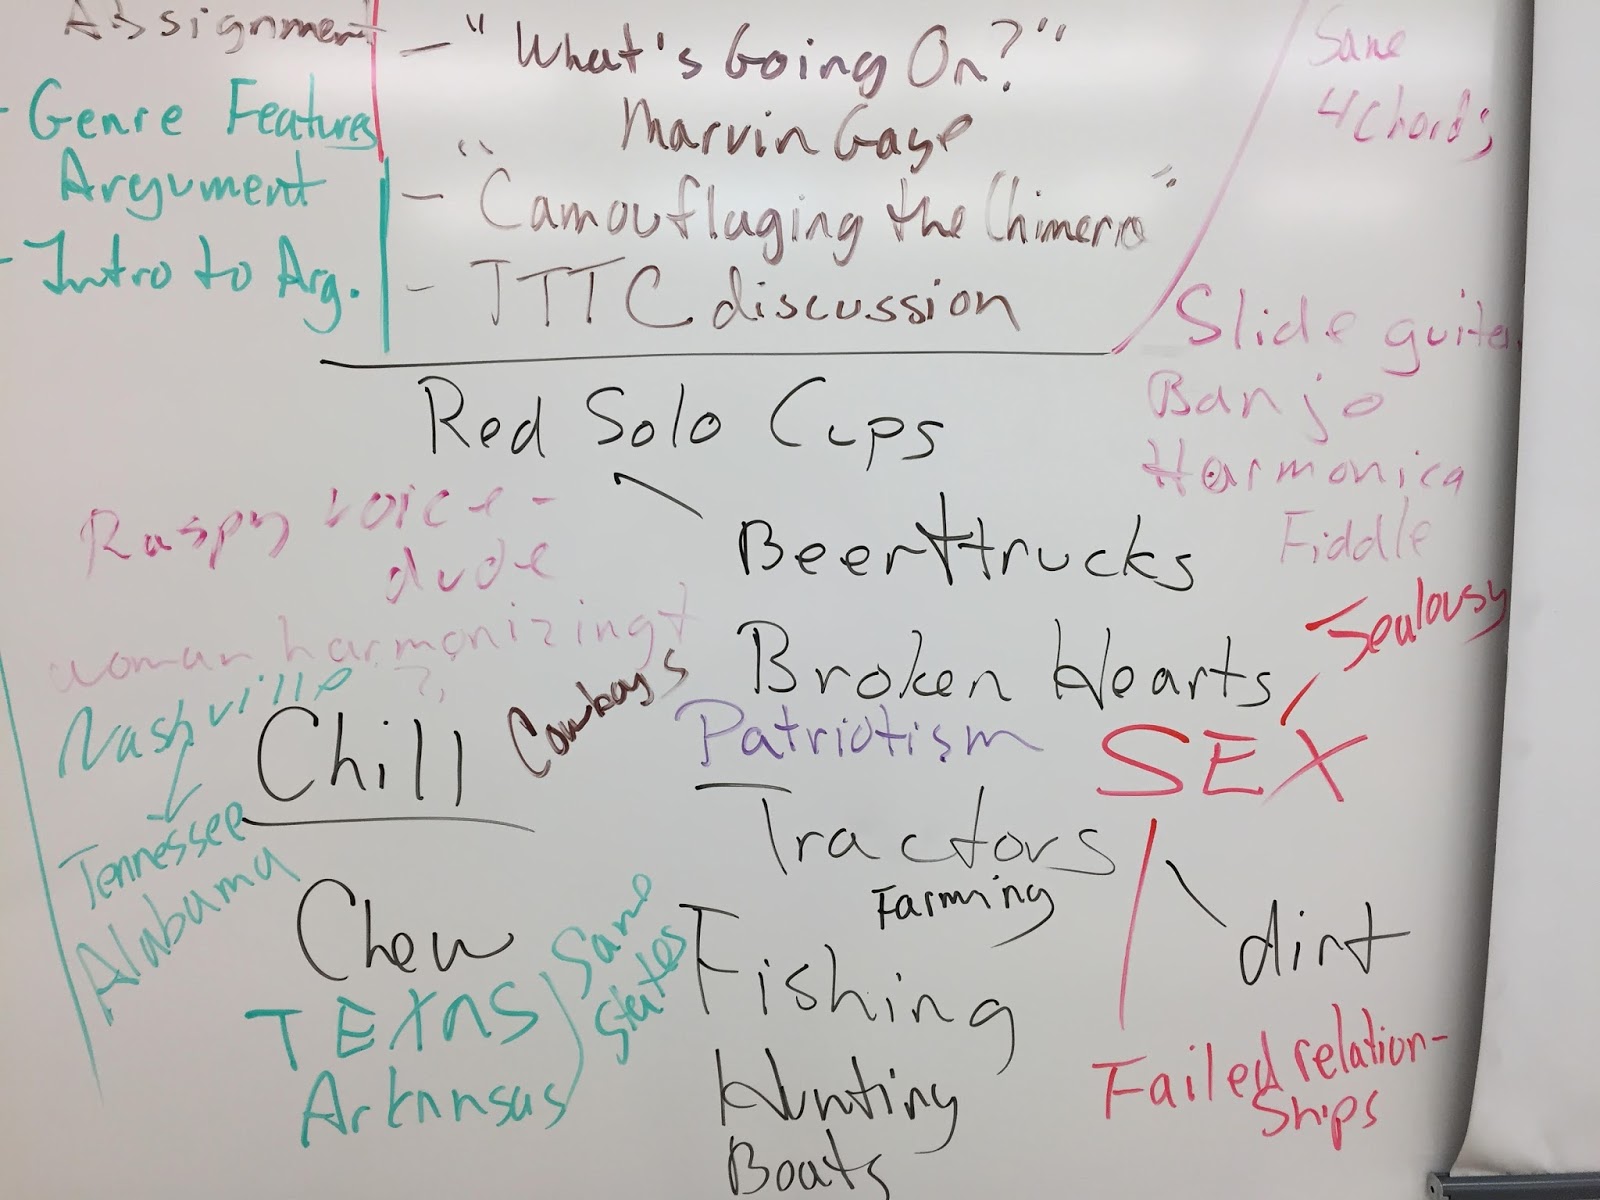 Assignment
- Genre Features
Argument
- Intro to Arg.
- "What's Going On?"
Marvin Gaye
- "Camouflaging the Chimera"
- TTTC discussion
Same
4 Chords
Slide guitar
Banjo
Harmonica
Fiddle
Red Solo Cups
Beer + trucks
Broken Hearts
Raspy voice -
dude
woman harmonizing +
?
Nashville
Tennessee
Alabama
Chill
Cowboys
Patriotism
Jealousy
SEX
dirt
Failed relation-
ships
Tractors
Farming
Chew
TEXAS
Arkansas
Same
states
Fishing
Hunting
Boats